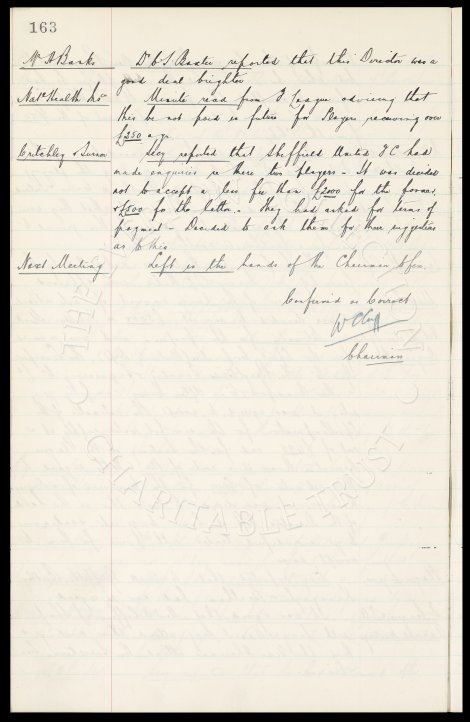 163
Mr A Banks Dr C.S. Baxter reported that this Director was a
good deal brighter
Natl Health Ins. Minute read from F. League advising that
this be not paid in future for Players receiving over
£250 a yr.
Critchley & Secy reported that Sheffield United FC had
made enquiries re these two players – It was decided
not to accept a less fee than £2000 for the former,
& £500 for the latter. – They had asked for terms of
payment – Decided to ask them for their suggestions
as to this
Next Meeting Left in the hands of the Chairman & Secy.
Confirmed as Correct
W C Cuff
Chairman
THE
CHARITABLE TRUST